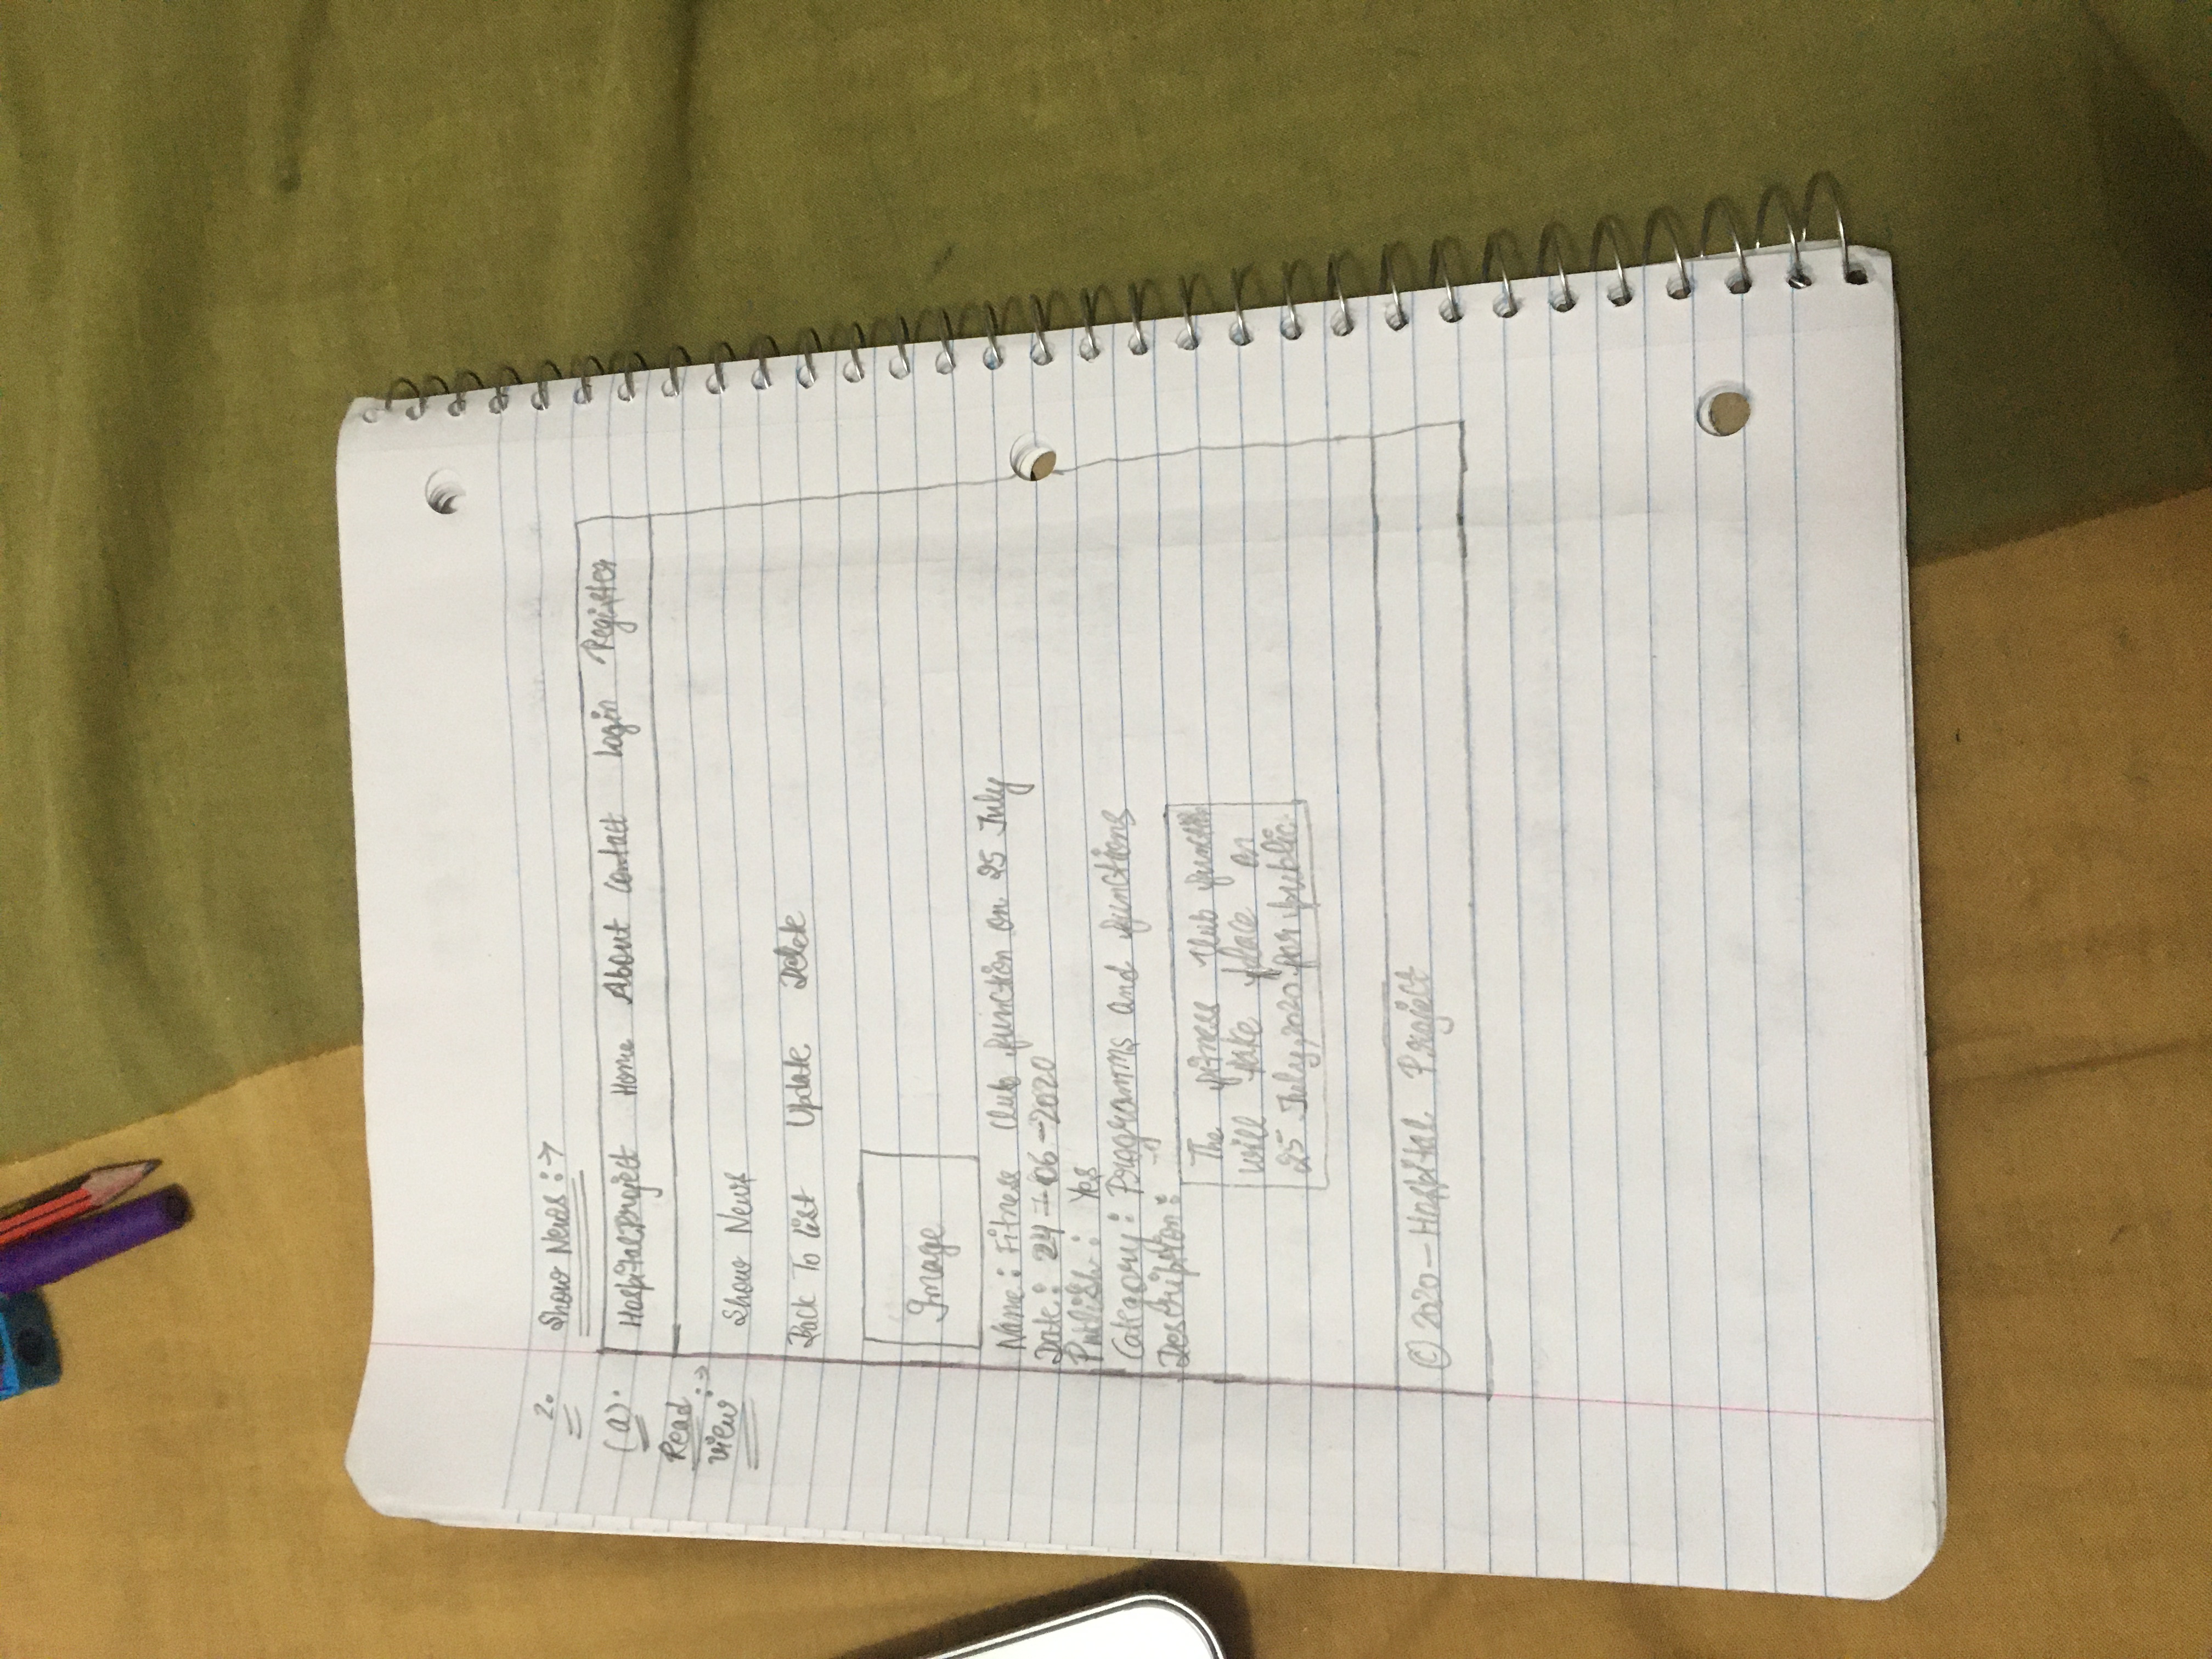 2. Show News :→
(a).
HospitalProject Home About Contact Login Register
Read
View :→
Show News
Back To List Update Delete
Image
Name : Fitness Club function on 25 July
Date : 24-06-2020
Publish : Yes
Category : Programms and functions
Description :
The fitness club function
will take place on
25 July, 2020 for public.
© 2020 - Hospital Project